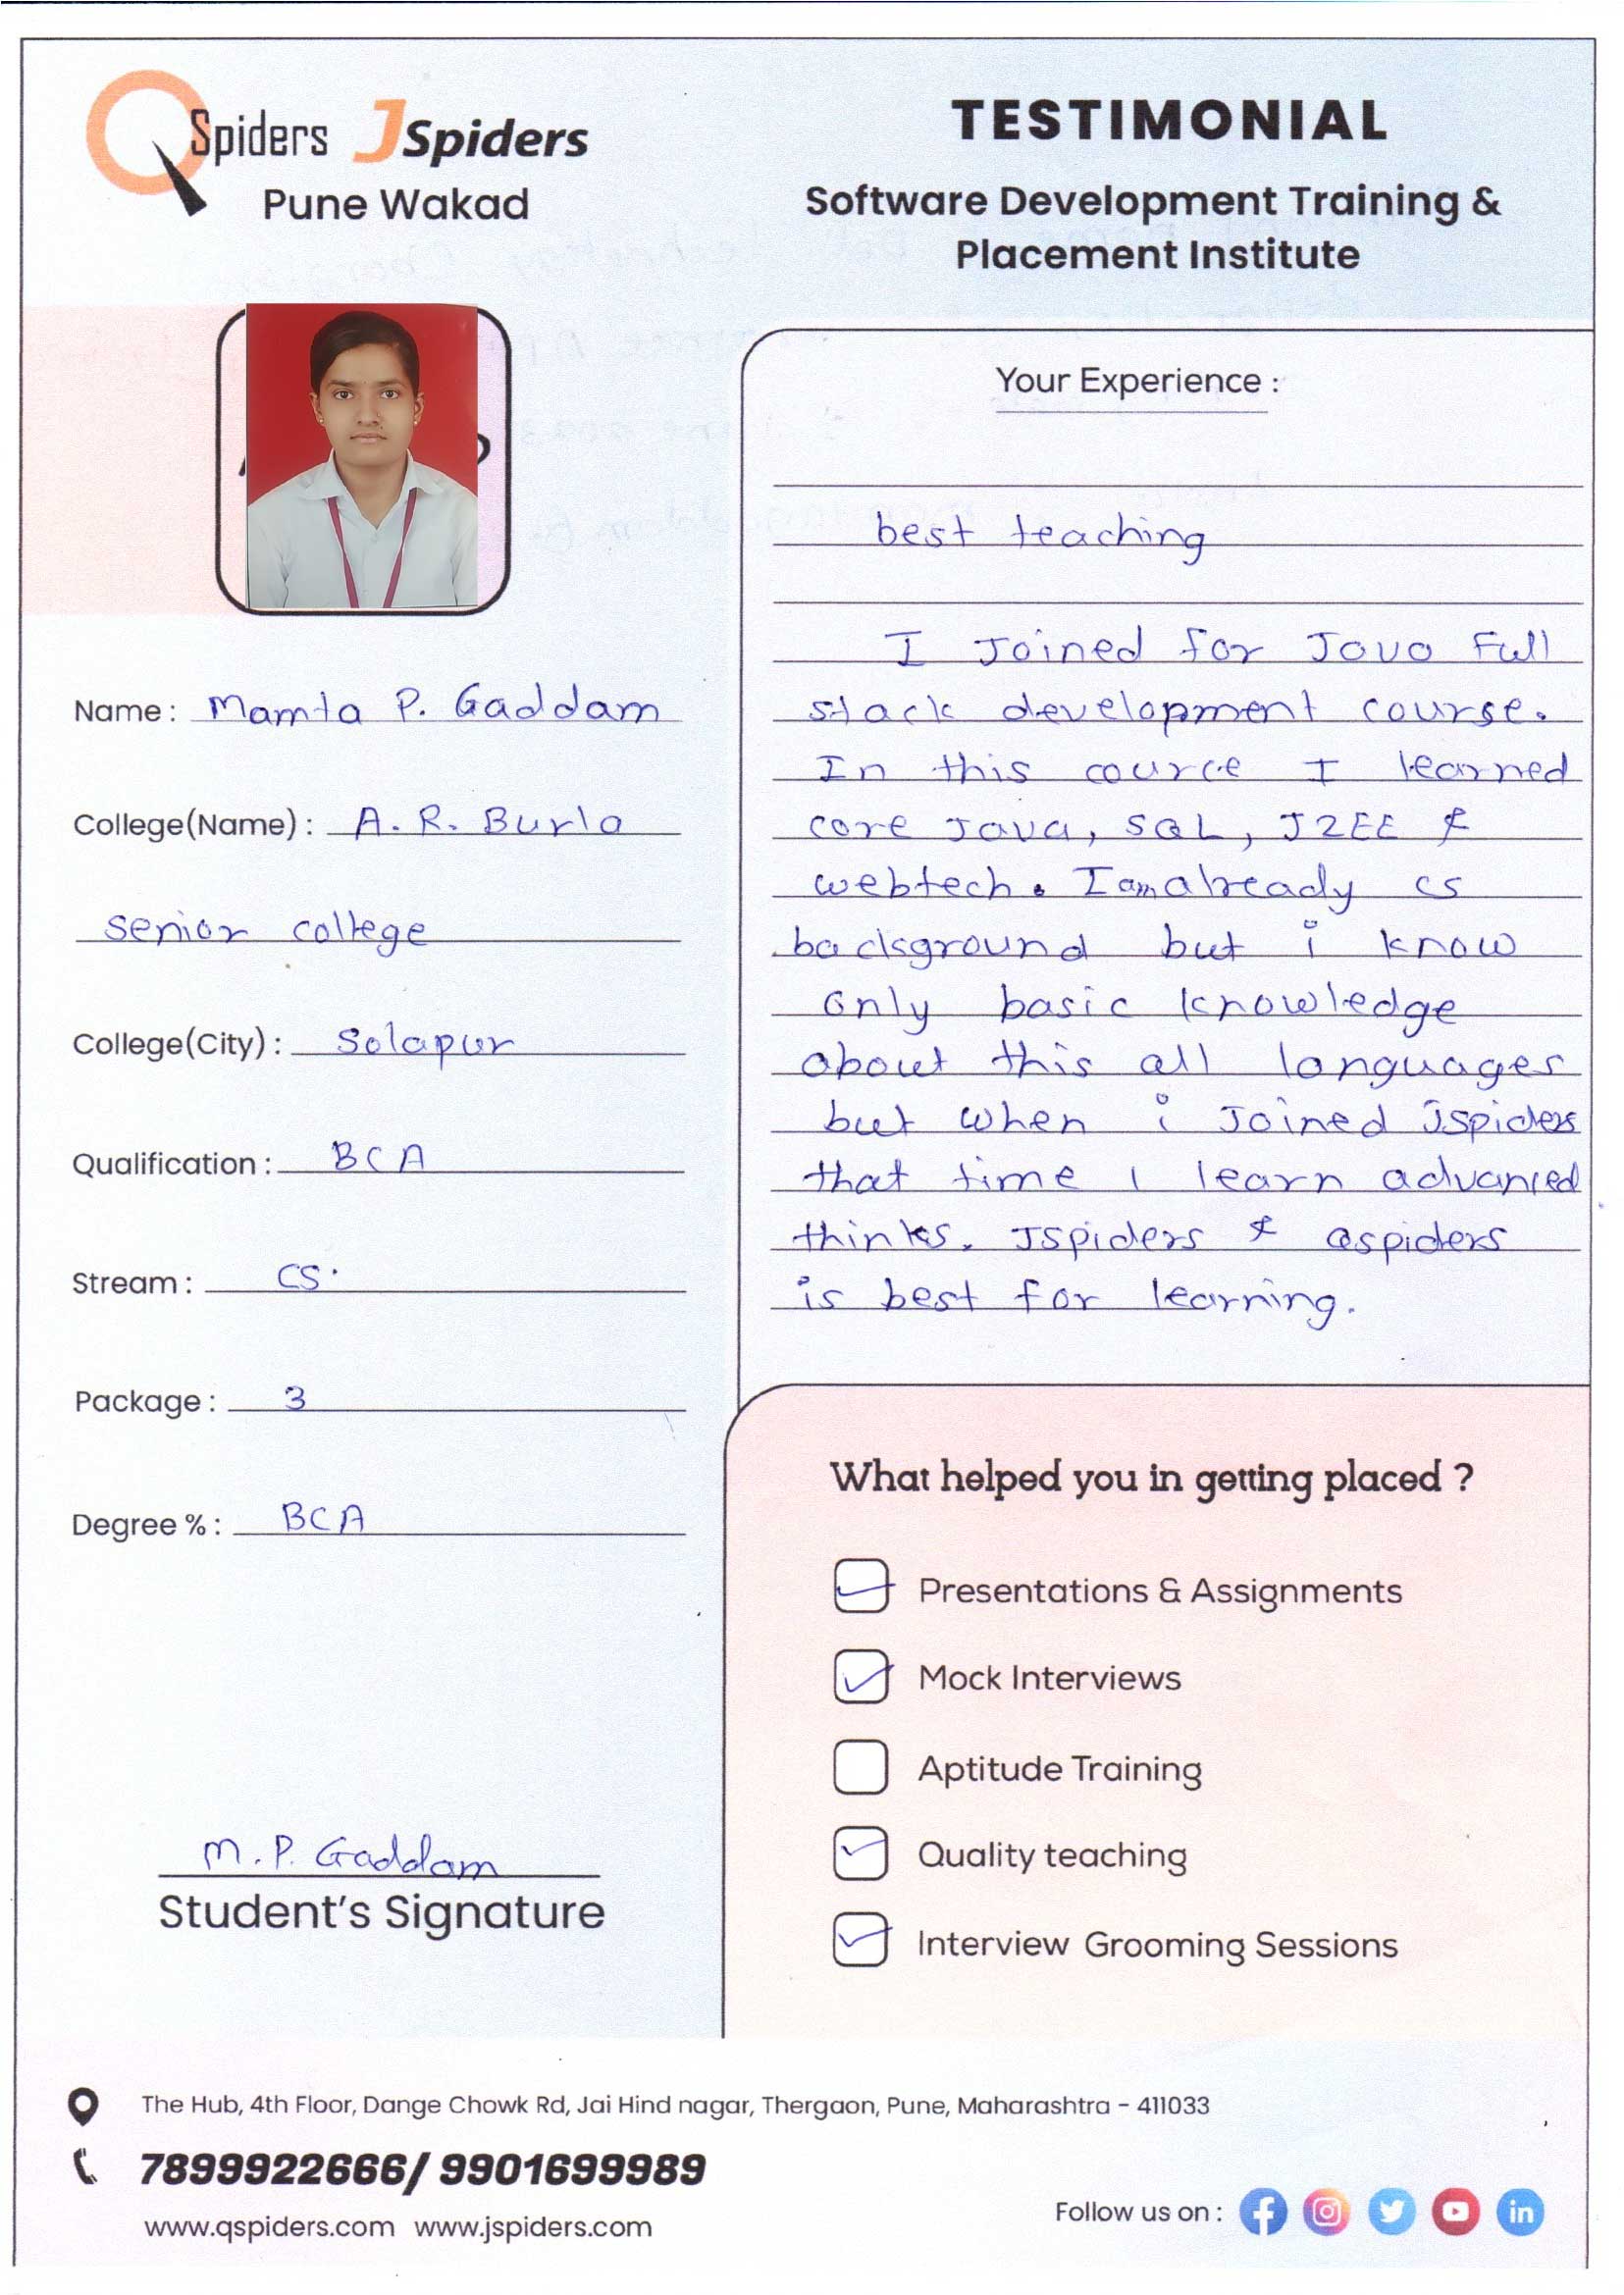 QSpiders JSpiders
Pune Wakad
TESTIMONIAL
Software Development Training &
Placement Institute
Name : Mamta P. Gaddam
College(Name) : A. R. Burla
senior college
College(City) : Solapur
Qualification : BCA
Stream : CS.
Package : 3
Degree % : BCA
M. P. Gaddam
Student's Signature
Your Experience :
best teaching
I Joined for Java Full
stack development course.
In this cource I learned
core Java, SQL, J2EE &
webtech. I am already cs
background but i know
only basic knowledge
about this all languages
but when i Joined Jspiders
that time I learn advanced
thinks. Jspiders & Qspiders
is best for learning.
What helped you in getting placed ?
Presentations & Assignments
Mock Interviews
Aptitude Training
Quality teaching
Interview Grooming Sessions
The Hub, 4th Floor, Dange Chowk Rd, Jai Hind nagar, Thergaon, Pune, Maharashtra - 411033
7899922666/ 9901699989
www.qspiders.com www.jspiders.com
Follow us on :